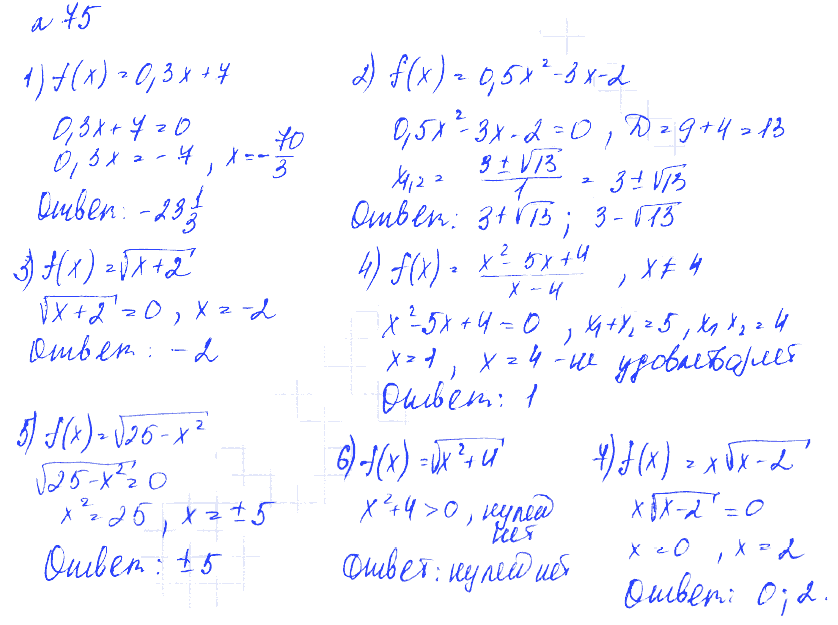 n 75
1) f(x) = 0,3x+7
0,3x+7=0
0,3x = -7, x = -70/3
Ответ: -23 1/3
2) f(x) = 0,5x²-3x-2
0,5x²-3x-2=0, D=9+4=13
x1,2 = (3±√13)/1 = 3±√13
Ответ: 3+√13; 3-√13
3) f(x) = √(x+2)
√(x+2) = 0, x = -2
Ответ: -2
4) f(x) = (x²-5x+4)/(x-4), x≠4
x²-5x+4=0, x1+x2=5, x1 x2=4
x=1, x=4 - не удовлетворяет
Ответ: 1
5) f(x) = √(25-x²)
√(25-x²)=0
x²=25, x=±5
Ответ: ±5
6) f(x) = √(x²+4)
x²+4>0, нулей
нет
Ответ: нулей нет
7) f(x) = x√(x-2)
x√(x-2) = 0
x=0, x=2
Ответ: 0; 2.